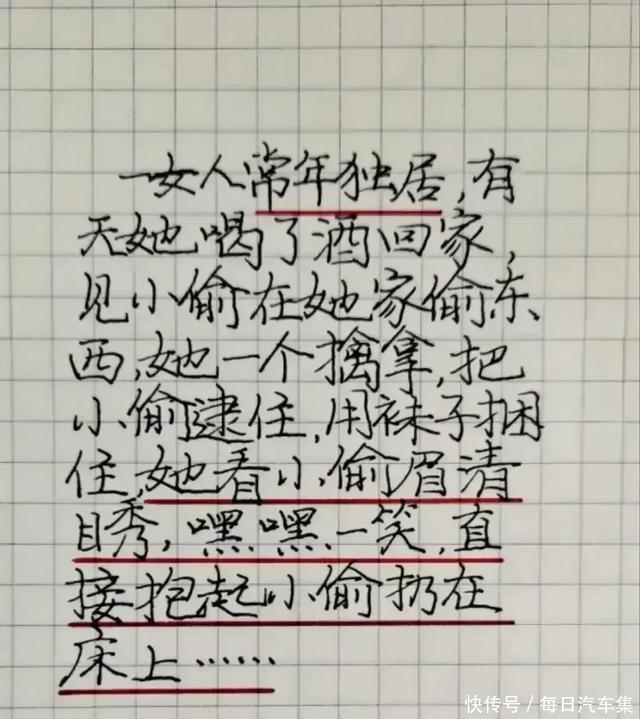 一女人常年独居,有
天她喝了酒回家,
见小偷在她家偷东
西,她一个擒拿,把
小偷逮住,用袜子捆
住,她看小偷眉清
目秀,嘿嘿一笑,直
接抱起小偷扔在
床上……
快传号/每日汽车集